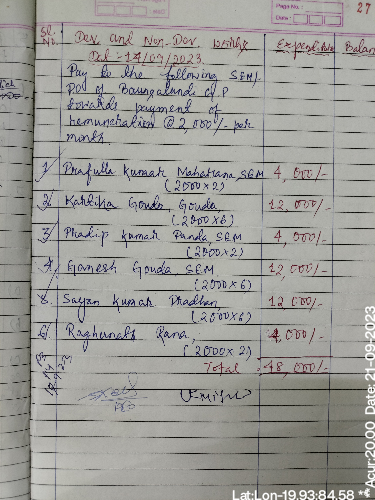 Page No.
Date :
27
Sl. No.
Dev. and Non-Dev. works
Expenditure
Balan
Dt :- 14/09/2023
Pay to the following SEM/
PO of Baungalundi G.P
towards payment of
remuneration @ 2,000/- per
month.
1. Prafulla Kumar Maharana, SEM 4,000/-
(2000×2)
2. Kartika Gouda Gouda 12,000/-
(2000×6)
3. Pradip Kumar Panda, SEM 4,000/-
(2000×2)
4. Ganesh Gouda SEM 12,000/-
(2000×6)
5. Sayan Kumar Pradhan, 12,000/-
(2000×6)
6. Raghunath Rana, 4,000/-
(2000×2)
Total 48,000/-
PEO
Lat:Lon-19.93:84.58 ** Acur:20.00 Date: 21-09-2023